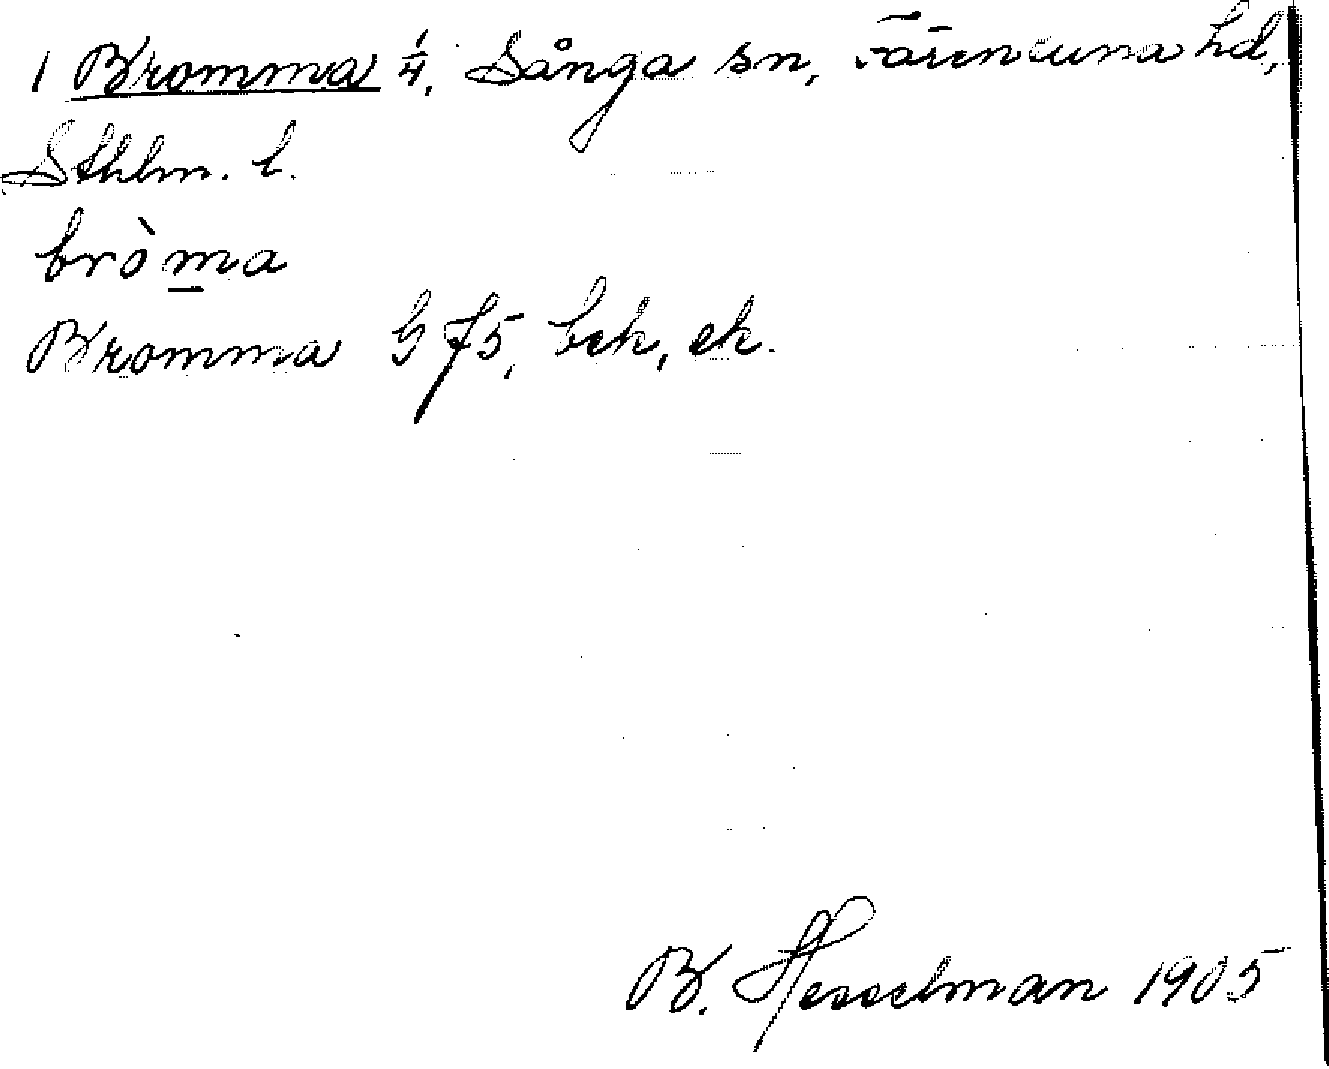 1 Bromma 1/4, Sånga sn, Färentuna hd,
Sthlm. l.
bròma
Bromma G 75, bek, ek.
B. Hesselman 1905